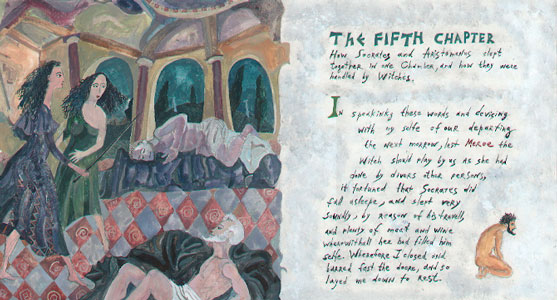 THE FIFTH CHAPTER
How Socrates and Aristomenes slept
together in one Chamber, and how they were
handled by Witches.
In speaking these words and devising
with my selfe of our departing
the next morrow, lest Meroe the
Witch should play by us as she had
done by divers other persons,
it fortuned that Socrates did
fall asleepe, and slept very
soundly, by reason of his travell
and plenty of meat and wine
wherewithall hee had filled him
selfe. Wherefore I closed and
barred fast the doores, and so
layed me down to rest.